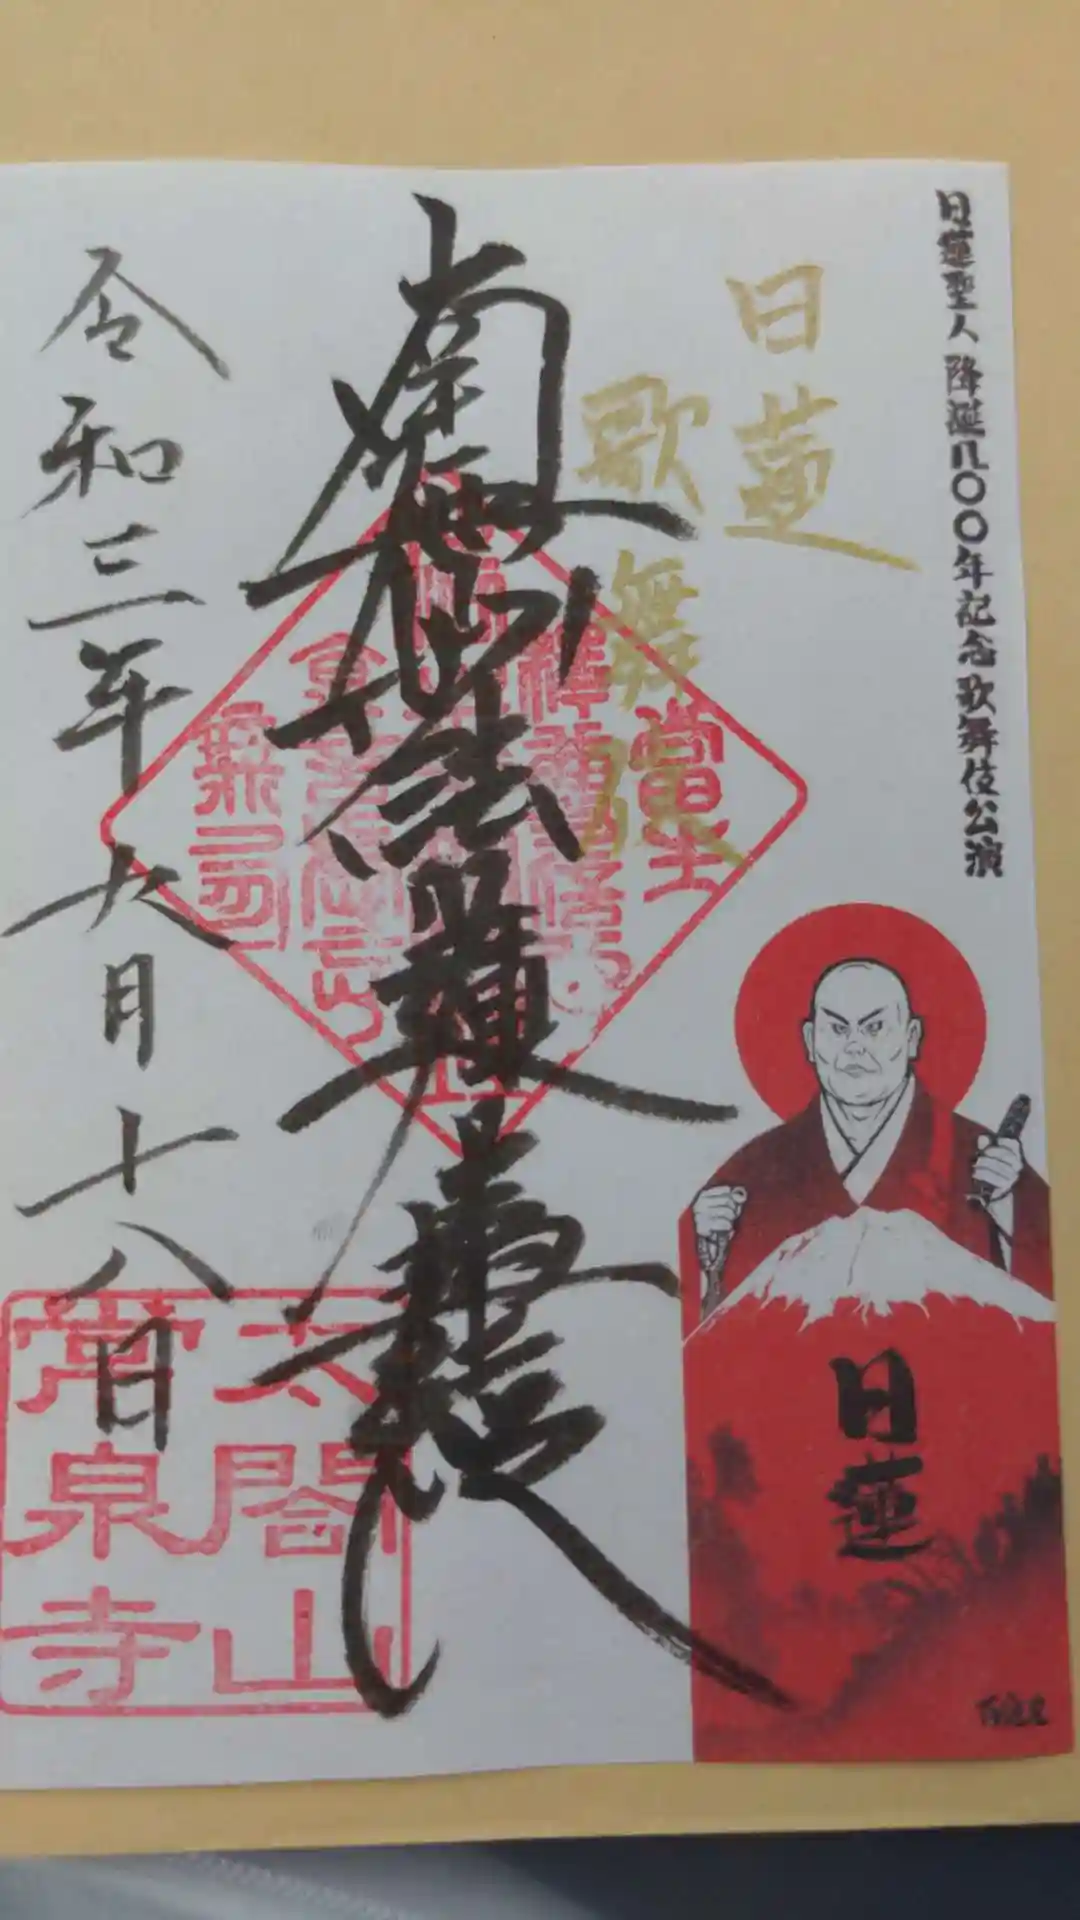 日蓮聖人降誕八〇〇年記念歌舞伎公演
日蓮
歌舞
南無妙法蓮華経
令和三年九月十八日
太閤山
常泉寺
日蓮